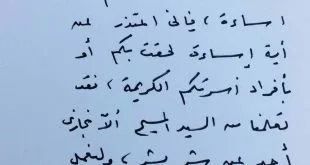 اساءة ، فإني اعتذر لمن
أية إساءة لحقت بكم أو
بأفراد أسرتكم الكريمة ، فقد
تعلمنا من السيد المسيح ألا نجازي
أحد عن شر بشر ، ولنعمل